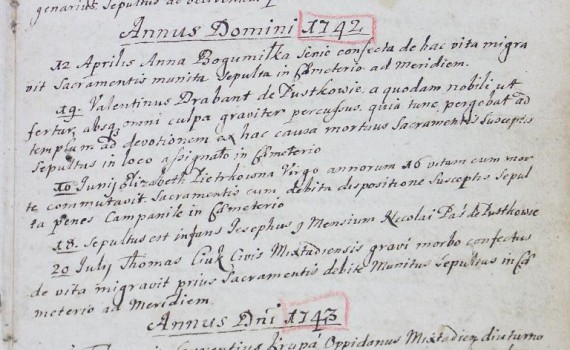 genarius, Sepultus
Annus Domini 1742
12 Aprilis Anna Bogumiłka Senio confecta de hac vita migra
vit Sacramentis munita Sepulta in Cæmeterio ad Meridiem.
19. Valentinus Drabant de Pustkowie, a quodam nobili, utt
fertur, absq omni culpa graviter percussus, quia tunc pergebat ad
templum ad devotionem ex hac causa mortuus Sacramentis Susceptis
Sepultus in loco assignato in Cæmeterio
10 Junij Elizabeth Pietrkowna Virgo annorum 16 vitam cum mor
te commutavit Sacramentis cum debita dispositione Susceptis Sepul
ta penes Campanile in Cæmeterio
18. Sepultus est infans Josephus 9 Mensium Nicolai Paś de Pustkowie
20 July Thomas Ciuk Civis Mixtadiensis gravi morbo confectus
de vita migravit prius Sacramentis debite Munitus Sepultus in Cæ
meterio ad Meridiem
Annus Dni 1743
Laurentius Krupa Oppidanus Mixtadien diuturno